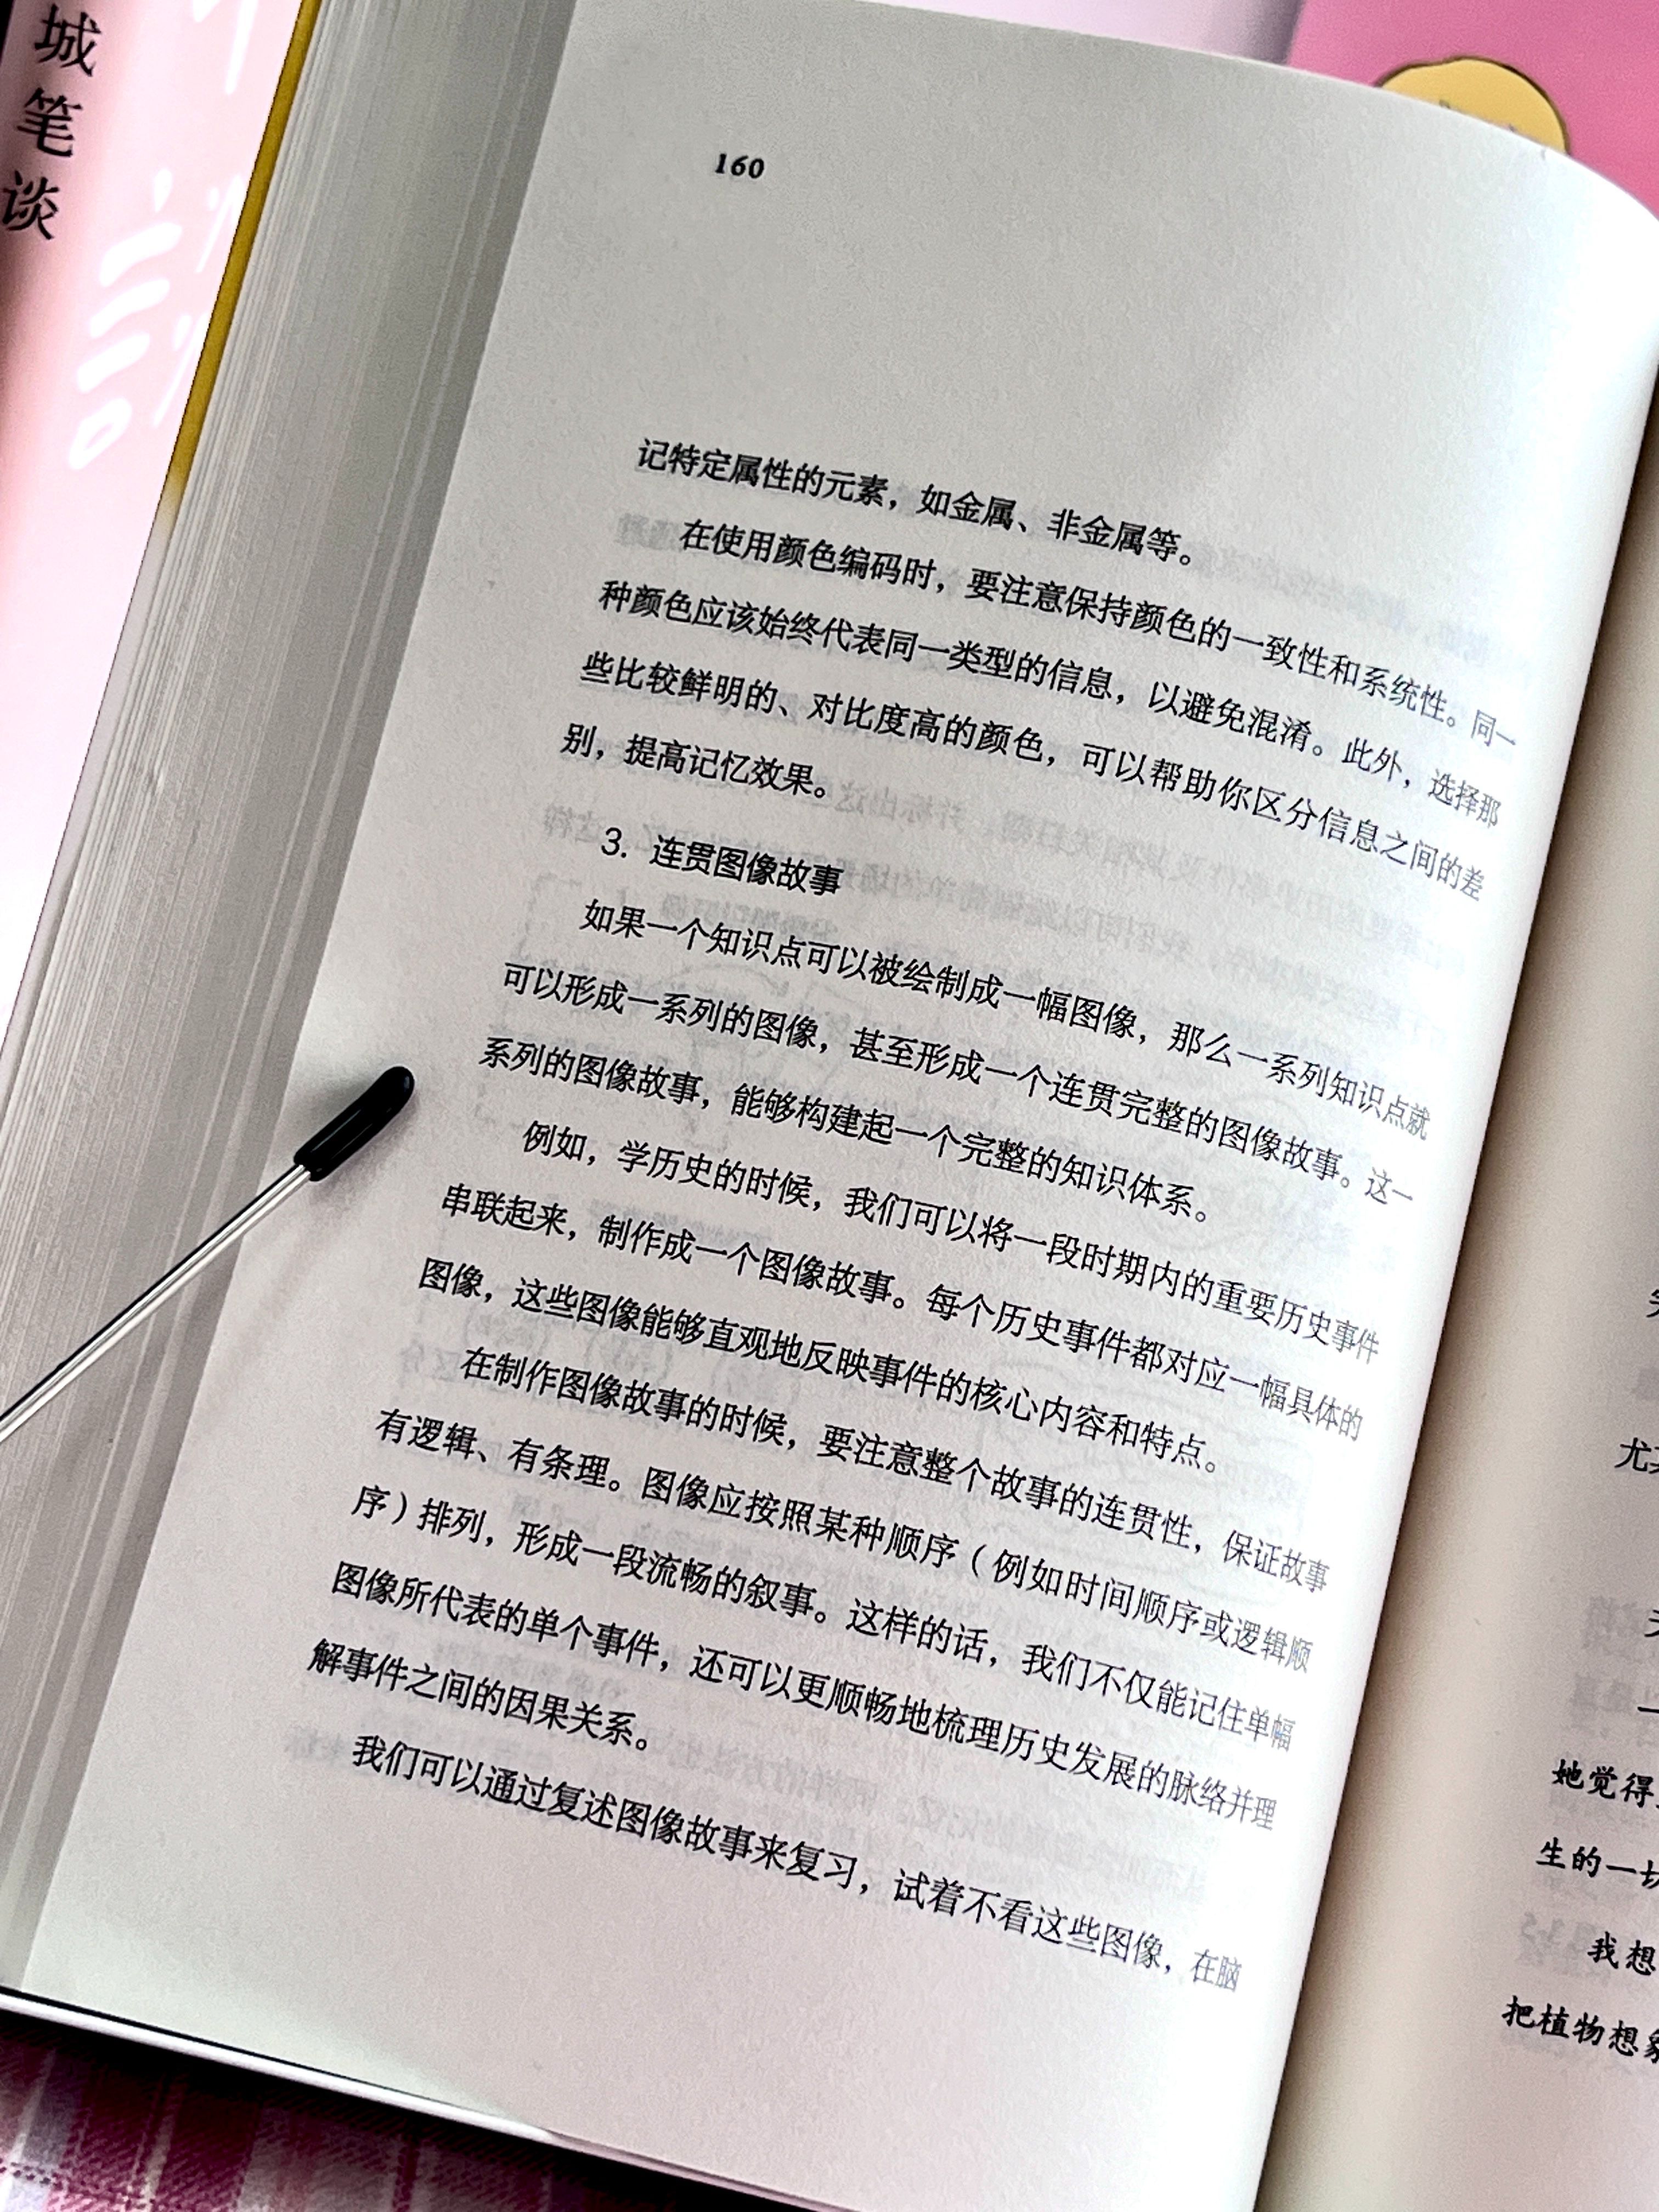 城
笔
谈
160
记特定属性的元素，如金属、非金属等。
在使用颜色编码时，要注意保持颜色的一致性和系统性。同一
种颜色应该始终代表同一类型的信息，以避免混淆。此外，选择那
些比较鲜明的、对比度高的颜色，可以帮助你区分信息之间的差
别，提高记忆效果。
3. 连贯图像故事
如果一个知识点可以被绘制成一幅图像，那么一系列知识点就
可以形成一系列的图像，甚至形成一个连贯完整的图像故事。这一
系列的图像故事，能够构建起一个完整的知识体系。
例如，学历史的时候，我们可以将一段时期内的重要历史事件
串联起来，制作成一个图像故事。每个历史事件都对应一幅具体的
图像，这些图像能够直观地反映事件的核心内容和特点。
在制作图像故事的时候，要注意整个故事的连贯性，保证故事
有逻辑、有条理。图像应按照某种顺序（例如时间顺序或逻辑顺
序）排列，形成一段流畅的叙事。这样的话，我们不仅能记住单幅
图像所代表的单个事件，还可以更顺畅地梳理历史发展的脉络并理
解事件之间的因果关系。
我们可以通过复述图像故事来复习，试着不看这些图像，在脑
尤
一
她觉得
生的一切
我想
把植物想象